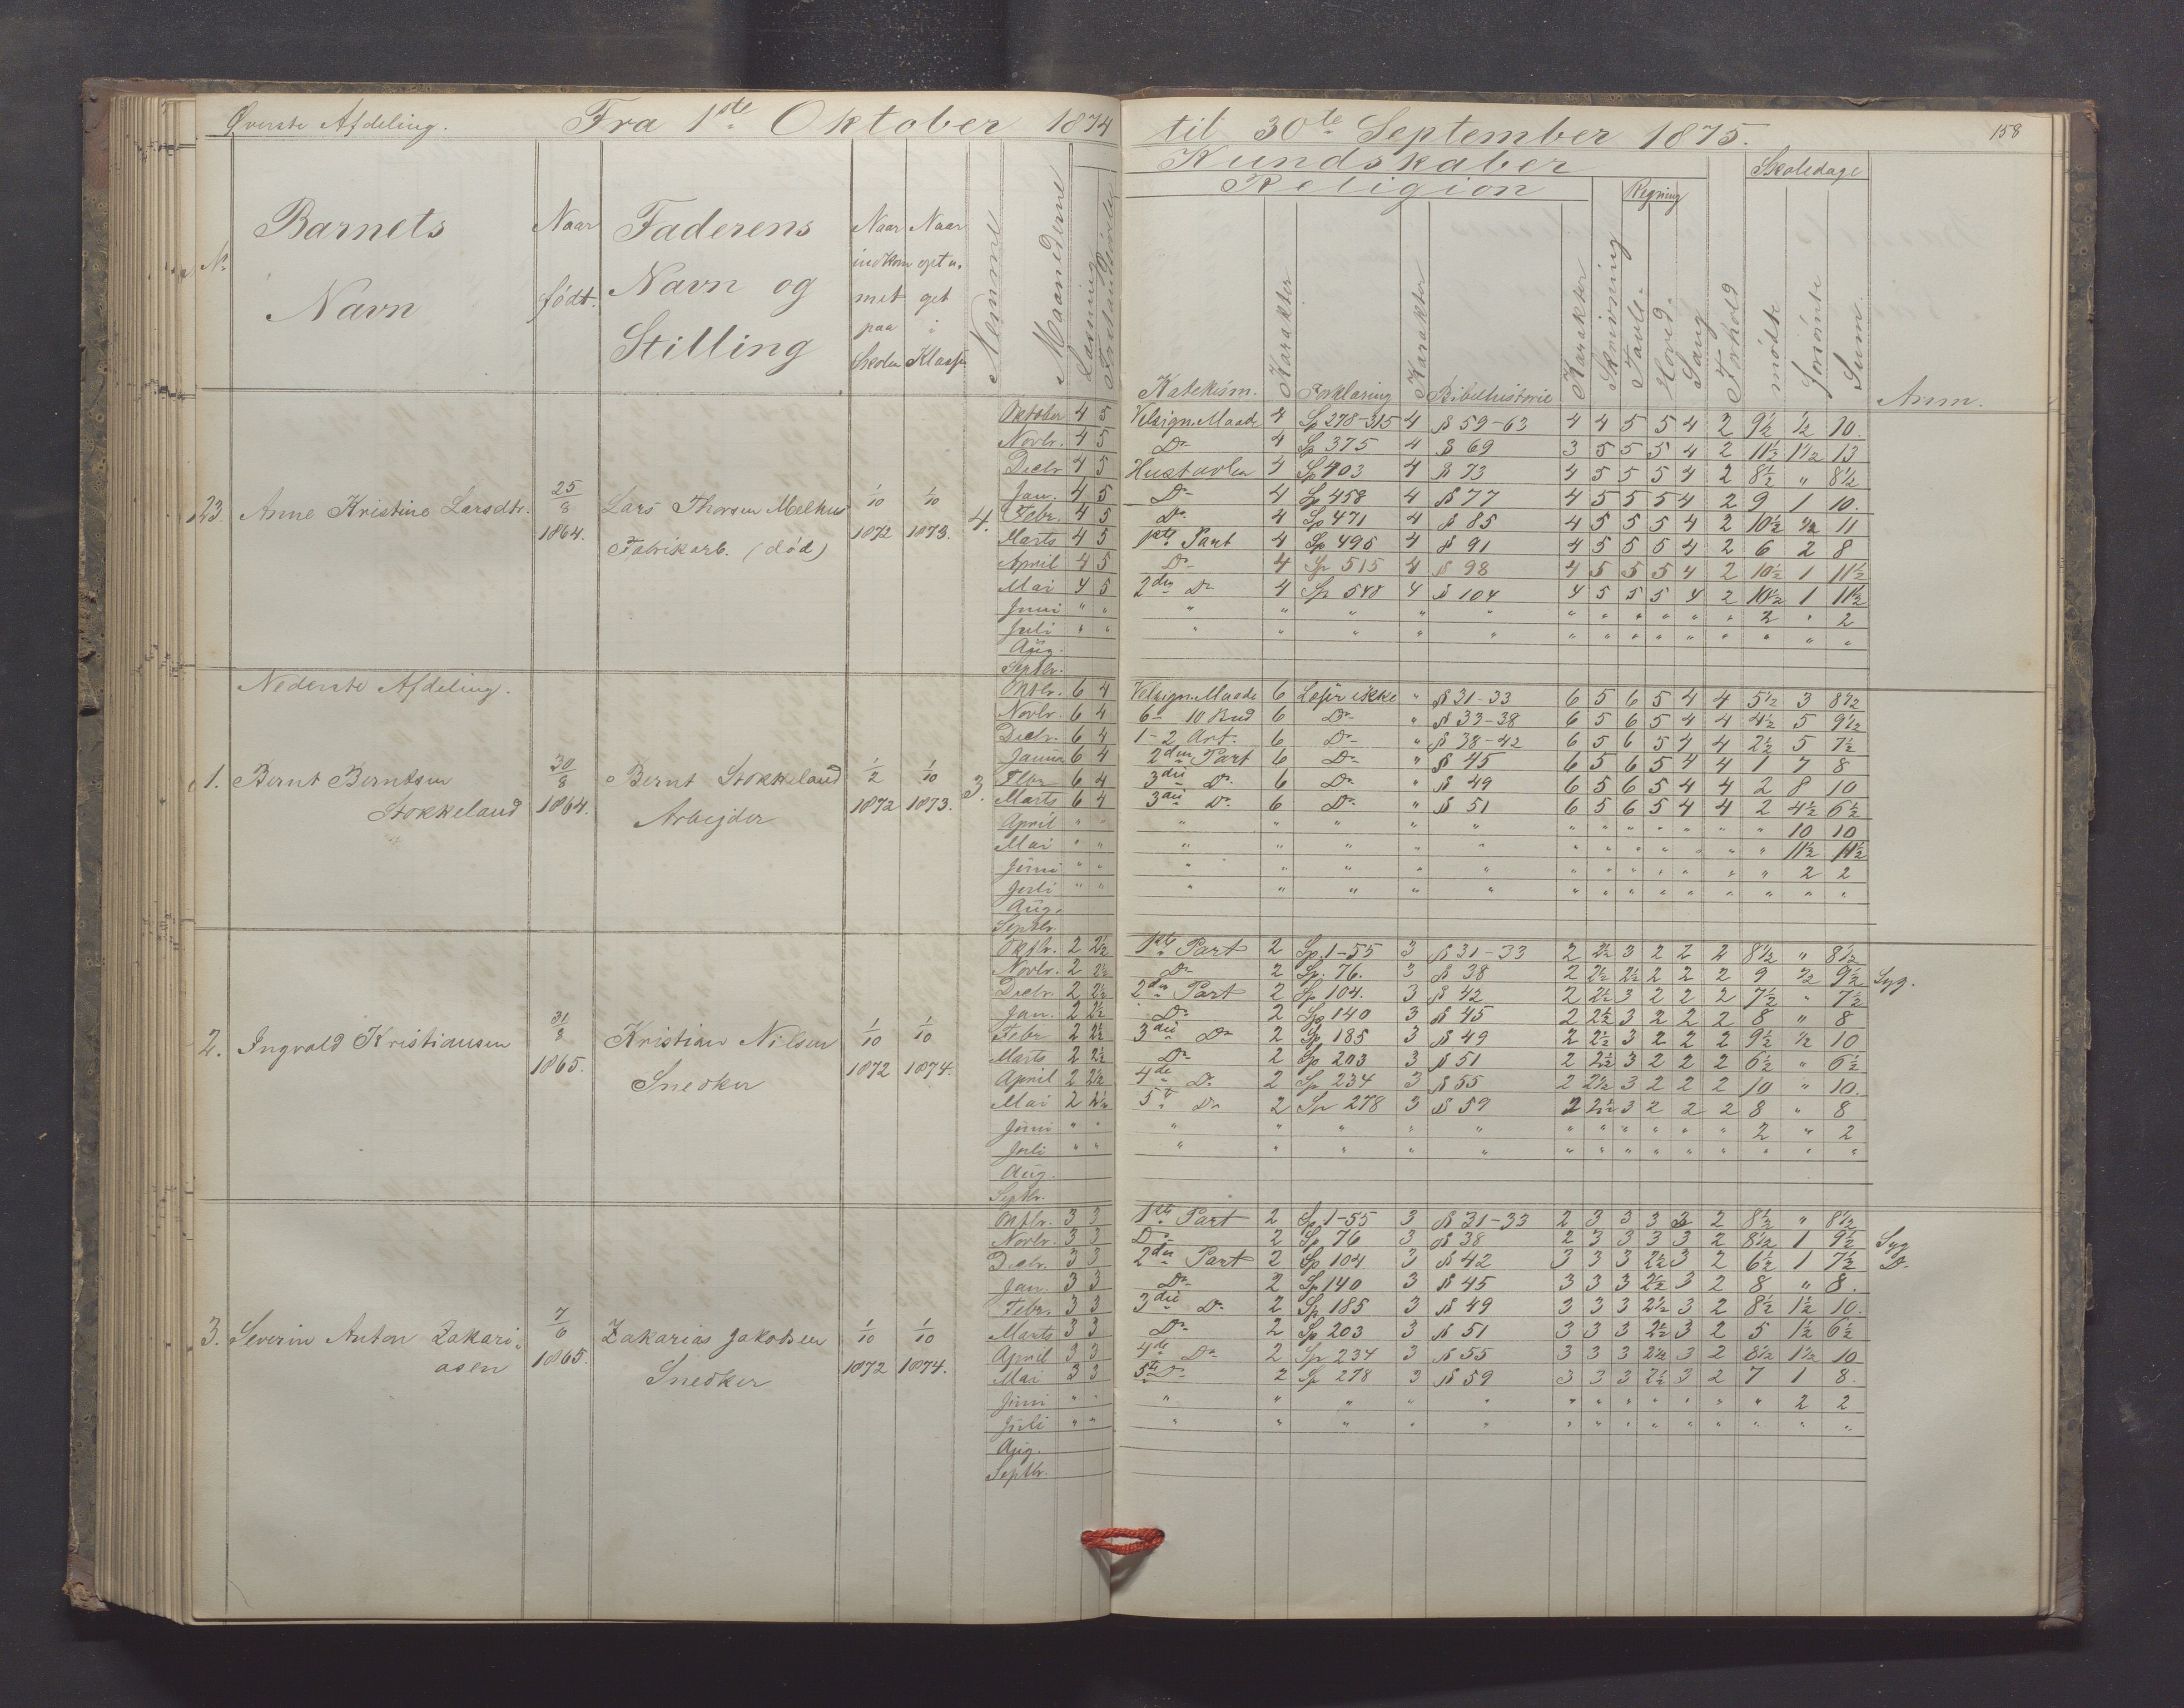 Øverste Afdeling. Fra 1ste Oktober 1874 til 30te September 1875. 158
Kundskaber
Religion Regning Skoledage
No Barnets Navn Naar født. Faderens Navn og Stilling Naar indkommet paa Skolen Naar optaget i Klassen Nemme Maanederne Læsning
Katekism. Karakter Forklaring Karakter Bibelhistorie Karakter Skrivning Tavle. Hoved. Sang Forhold mødte forsømte Sum. Anm.
23. Anne Kristine Larsdtr. 25/8 1864. Lars Thorsen Melhus Fabrikarb. (død) 1/10 1872 1/10 1873. 4.
Oktober 4 5 Velsign. Maade 4 Sp 278-315 4 § 59-63 4 4 5 5 4 2 9½ ½ 10.
Novbr. 4 5 Do 4 Sp 375 4 § 69 3 5 5 5 4 2 11½ 1½ 13
Decbr 4 5 Hustavlen 4 Sp 403 4 § 73 4 5 5 5 4 2 8½ " 8½
Jan. 4 5 Do 4 Sp 458 4 § 77 4 5 5 5 4 2 9 1 10.
Febr. 4 5 Do 4 Sp 471 4 § 85 4 5 5 5 4 2 10½ ½ 11
Marts 4 5 1ste Part 4 Sp 495 4 § 91 4 5 5 5 4 2 6 2 8
April 4 5 Do 4 Sp 515 4 § 98 4 5 5 5 4 2 10½ 1 11½
Mai 4 5 2den Do 4 Sp 548 4 § 104 4 5 5 5 4 2 10½ 1 11½
Juni " " " " " " " " " " " " " 2 " 2
Juli " " " " " " " " " " " " " " " "
Aug.
Septbr.
Nederste Afdeling.
1. Bernt Berntsen Stokkeland 30/8 1864. Bernt Stokkeland Arbejder 1/2 1872 1/10 1873. 3.
Oktbr. 6 4 Velsign. Maade 6 Læser ikke " § 31-33 6 5 6 5 4 4 5½ 3 8½
Novbr. 6 4 6- 10 Bud 6 Do " § 33-38 6 5 6 5 4 4 4½ 5 9½
Decbr. 6 4 1-2 Art. 6 Do " § 38-42 6 5 6 5 4 4 2½ 5 7½
Januar 6 4 2den Part 6 Do " § 45 6 5 6 5 4 4 1 7 8
Febr 6 4 3die Do. 6 Do " § 49 6 5 6 5 4 4 2 8 10
Marts 6 4 3die Do. 6 Do " § 51 6 5 6 5 4 4 2 4½ 6½
April " " " " " " " " " " " " " " 10 10
Mai " " " " " " " " " " " " " " 11½ 11½
Juni " " " " " " " " " " " " " " 2 2
Juli " " " " " " " " " " " " " " " "
Aug.
Septbr.
2. Ingvald Kristiansen 31/8 1865. Kristian Nilsen Snedker 1/10 1872 1/10 1874.
Oktbr. 2 2½ 1ste Part 2 Sp. 1-55 3 § 31-33 2 2½ 3 2 2 2 8½ " 8½
Novbr. 2 2½ Do 2 Sp. 76. 3 § 38 2 2½ 2½ 2 2 2 9 ½ 9½ Syg.
Decbr. 2 2½ 2den Part 2 Sp 104. 3 § 42 2 2½ 3 2 2 2 7½ " 7½
Jan. 2 2½ Do 2 Sp 140 3 § 45 2 2½ 3 2 2 2 8 " 8
Febr 2 2½ 3die Do 2 Sp 185 3 § 49 2 2½ 3 2 2 2 9½ ½ 10
Marts 2 2½ Do 2 Sp 203 3 § 51 2 2½ 3 2 2 2 6½ " 6½
April 2 2½ 4de Do. 2 Sp 234 3 § 55 2 2½ 3 2 2 2 10 " 10.
Mai 2 2½ 5te Do 2 Sp 278 3 § 59 2 2½ 3 2 2 2 8 " 8
Juni " " " " " " " " " " " " " 2 " 2
Juli " " " " " " " " " " " " " " " "
Aug.
Septbr.
3. Severin Anton Zakariasen 7/6 1865. Zakarias Jakobsen Snedker 1/10 1872 1/10 1874.
Oktbr. 3 3 1ste Part 2 Sp 1-55 3 § 31-33 2 3 3 3 3 2 8½ " 8½
Novbr. 3 3 Do 2 Sp 76 3 § 38 2 3 3 3 3 2 8½ 1 9½ Syg
Decbr. 3 3 2den Part 2 Sp 104 3 § 42 3 3 3 2½ 3 2 6½ 1 7½ Do.
Jan. 3 3 Do 2 Sp 140 3 § 45 3 3 3 2½ 3 2 8 " 8.
Febr. 3 3 3die Do 2 Sp 185 3 § 49 3 3 3 2½ 3 2 8½ 1½ 10.
Marts 3 3 Do 2 Sp 203 3 § 51 3 3 3 2½ 3 2 5 1½ 6½
April 3 3 4de Do 2 Sp 234 3 § 55 3 3 3 2½ 3 2 8½ 1½ 10
Mai 3 3 5te Do 2 Sp 278 3 § 59 3 3 3 2½ 3 2 7 1 8.
Juni " " " " " " " " " " " " " " 2 2
Juli " " " " " " " " " " " " " " " "
Aug.
Septbr.